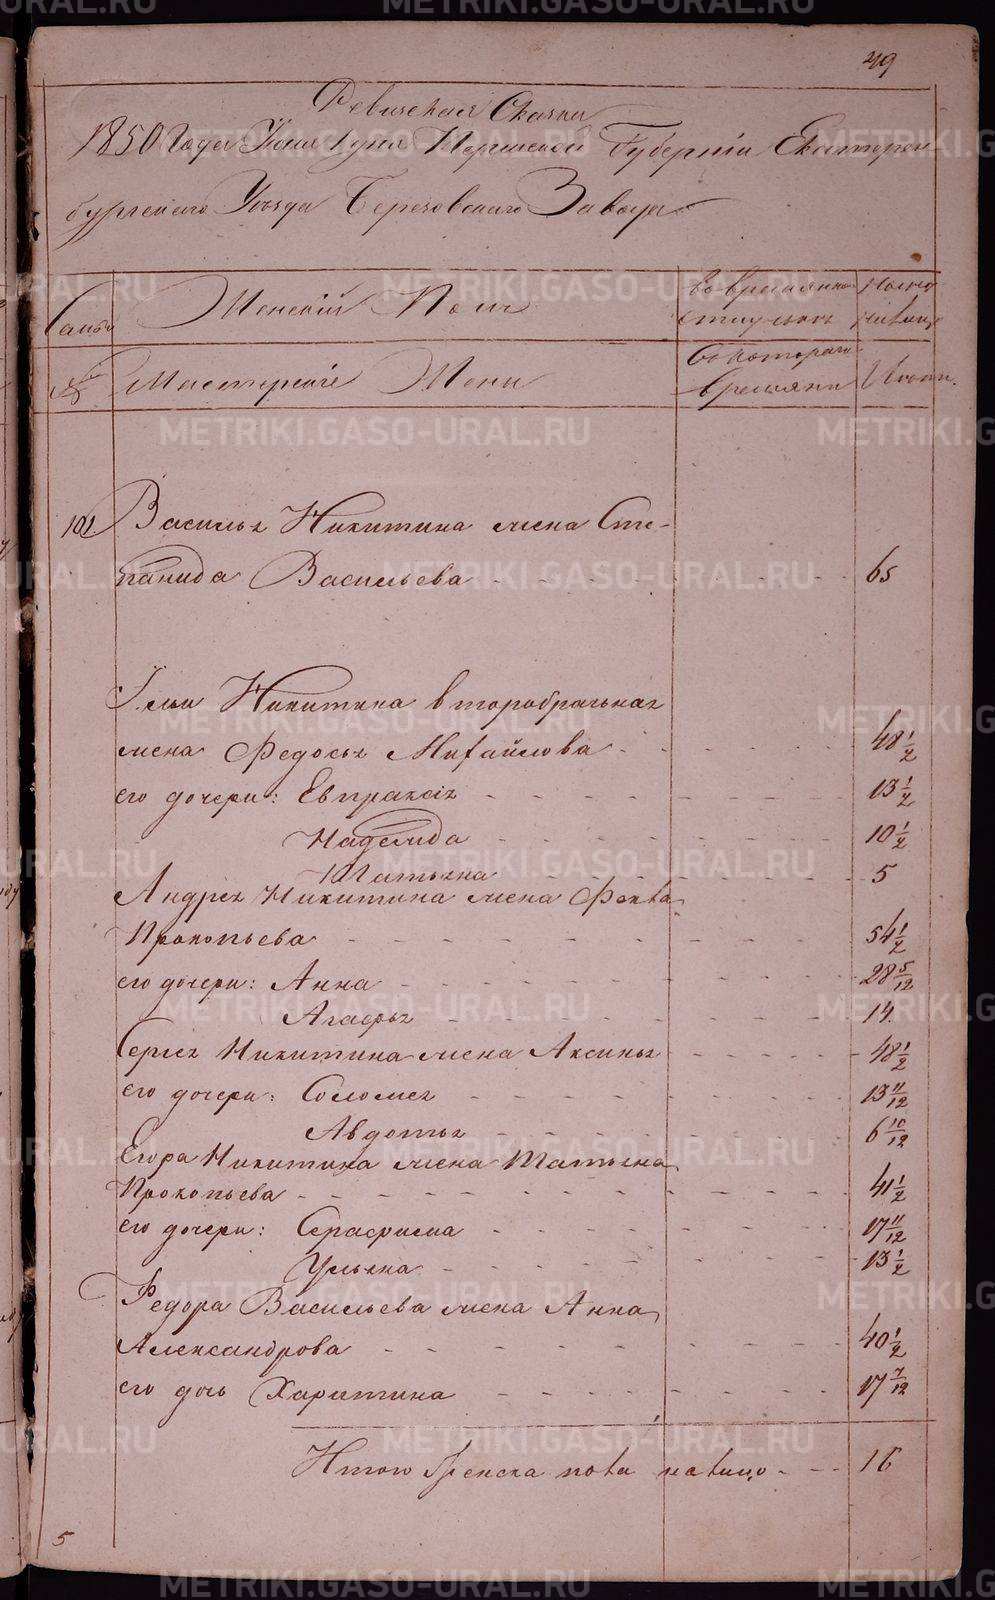 49
Ревизская Сказка
1850 года Пермской Губернiи Екатерин-
бургскаго Уезда Березовскаго Завода
Семьи Женскiй Полъ Во временной на лицо
отлучкѣ
№ Мастерскiе Жены Съ котораго Лета.
времяни
102. Василья Никитина жена Сте-
панида Васильева 65
Ильи Никитина второбрачная
жена Федосья Михайлова 48 1/2
его дочери: Евпраксiя 13 1/2
Надежда 10 1/2
Татьяна 5
Андрея Никитина жена Фекла
Прокопьева 54 1/2
его дочери: Анна 28 5/12
Агафья 14
Сергея Никитина жена Аксинья 48 1/2
его дочери: Соломея 13 11/12
Авдотья 6 10/12
Егора Никитина жена Татьяна
Прокопьева 41 1/2
его дочери: Серафима 17 11/12
Ульяна 13 1/2
Федора Васильева жена Анна
Александрова 40 1/2
его дочь Харитина 17 7/12
Итого женска пола на лицо 16
5
METRIKI.GASO-URAL.RU